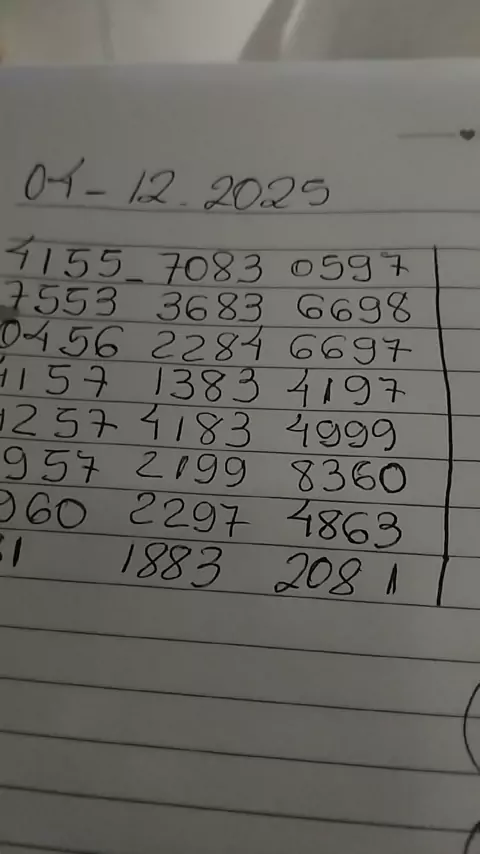 04-12.2025
4155_ 7083 0597
7553 3683 6698
0456 2284 6697
4157 1383 4197
1257 4183 4999
957 2199 8360
960 2297 4863
31 1883 2081